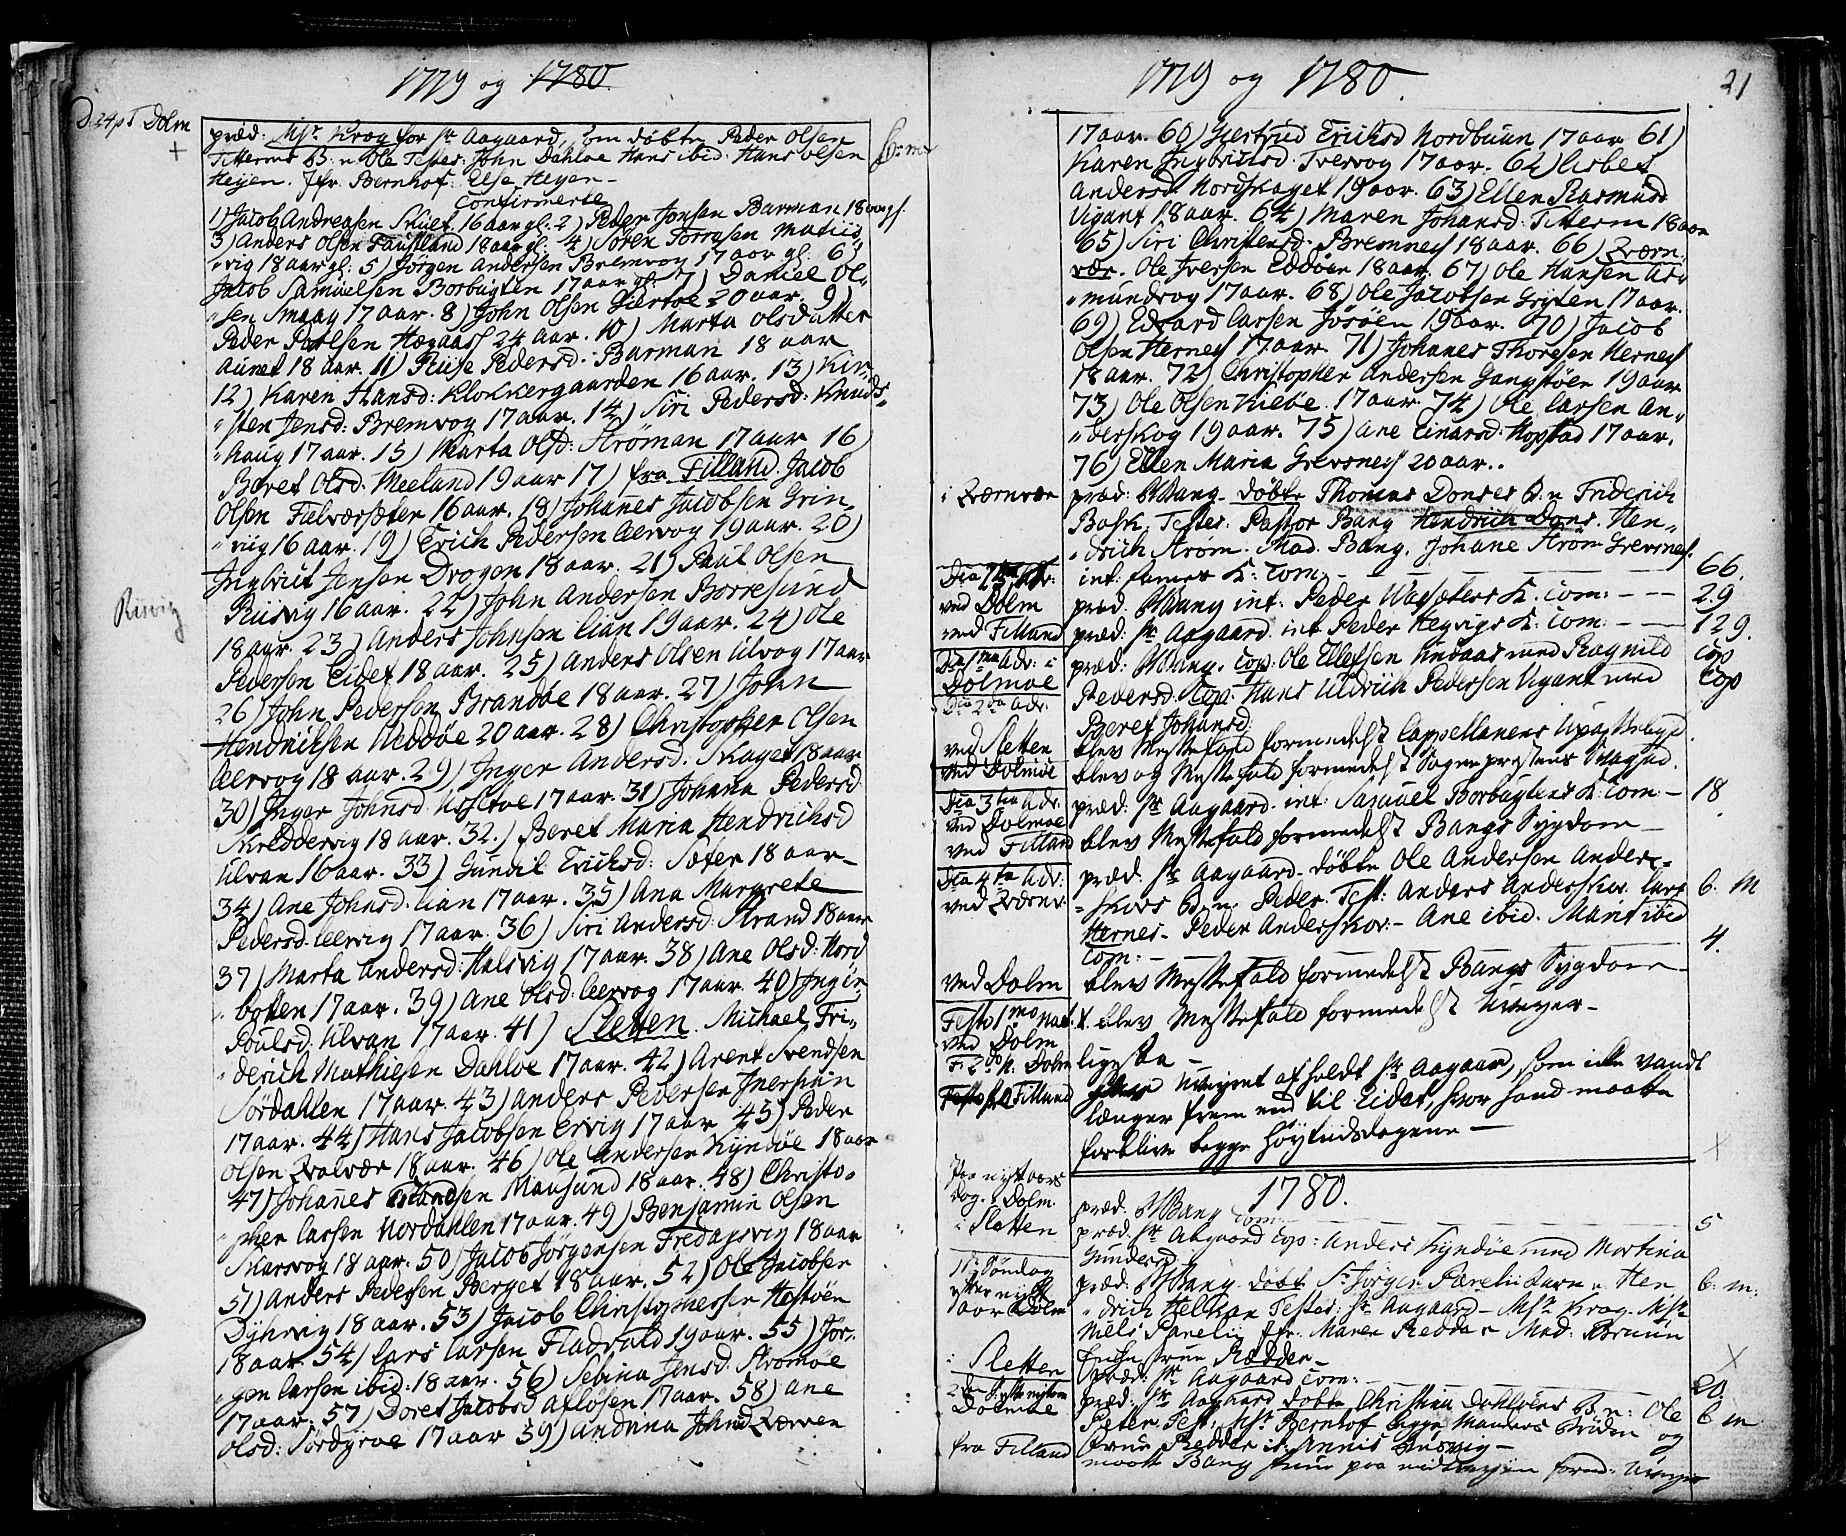 1779 og 1780.
D. 24 p T Dolm
præd: Msr. Krog for Hr Aagaard, som døbte Peder Olsen
Titterens B: n Ole Testes: John Dahloe Hans ibid: Hans olsen
Heyen. Jfr. Bernhof: Else Heyen -
Confirmerte
1) Jacob Andreasen Stuet. 16 aar gl. 2) Peder Jonsen Barman 18 aar gl.
3) Anders Olsen Faustland 18 aar gl. 4) Søren
vig 18 aar gl: 5) Jørgen Andersen Bremvog 17 aar gl: 6)
Jacob Samuelsen Borbugten 17 aar gl. 7) Daniel Ol-
sen Smaag 17 aar. 8) John Olsen Giertoe 20 aar. 9)
Peder Poelsen Hægaas 24 aar. 10) Marta Olsdatter
aunet 18 aar. 11) Pedersd. Barman 18 aar
12) Karen Hansd: Klokkergaarden 16 aar. 13) Kir-
sten Jensd: Bremvog 17 aar. 14) Siri Pedersd: Knuds-
haug 17 aar. 15) Marta Olsd: Strøman 17 aar 16)
Beret Olsd: Meeland 19 aar 17) fra Filland. Jacob
Olsen Fielværsæter 16 aar. 18) Johanes Jacobsen Grin-
viig 16 aar. 19) Erich Pedersen Ulervog 19 aar. 20)
Ingbrict Jensen Drogen 18 aar. 21) Paul Olsen
Riisvig 16 aar. 22) John Andersen Borresund
Risvig
18 aar. 23) Anders Johnsen Lian 19 aar. 24) Ole
Pedersen Eidet 18 aar. 25) Anders Olsen Ulvog 17 aar
26) John Pedersen Brandøe 18 aar. 27) John
Hendrichsen Ueddøe 20 aar. 28) Christopher Olsen
Ulervog 18 aar. 29) Inger Andersd. Skaget 18 aar
30) Inger Johnsd. 17 aar. 31) Johana Pedersd
Kreddervig 18 aar. 32.) Beret Maria Hendrichsd
Ulvan 16 aar. 33) Gundil Erichsd: Sæter 18 aar-
34) Ane Johnsd. Lian 17 aar. 35) Ana Margrete
Pedersd. Ulervig 17 aar. 36) Siri Andersd: Strand 18 aar
37) Marta Andersd: Halsvig 17 aar. 38) Ane Olsd: Nord
botten 17 aar. 39) Ane Olsd: Ulervog 17 aar. 40) Ingir
Poulsd: Ulvan 17 aar. 41) Sletten. Michael Fri-
derich Mathiesen Dahloe 17 aar. 42) Arent Svendsen
Sørdahlen 17 aar. 43) Anders Pedersen
17 aar. 44) Hans Jacobsen Ervig 17 aar 45) Peder
Olsen Kvalvær 18 aar. 46) Ole Andersen Kyndøe 18 aar
47) Johanes Mausund 18 aar. 48) Christo-
pher Larsen Nordahlen 17 aar. 49) Benjamin Olsen
Skarsvog 18 aar. 50) Jacob Jørgensen Fredagsvig 18 aar
51) Anders Pedersen Berget 18 aar. 52) Ole Jacobsen
Dyhrvig 18 aar. 53) Jacob Christophersen Hestøen
18 aar. 54) Lars Larsen Fladvald 19 aar. 55) Jør-
gen Larsen ibid: 18 aar. 56) Sebina Jensd: Stromøe
17 aar. 57) Doret Jacobsd Afløsen 17 aar. 58) Ane
Olsd: Sørdyrøe 17 aar 59) Johnsd Kverven
1779 og 1780.
21
17 aar. 60) Giertrud Erichsd Nordbuan 17 aar 61)
Karen Ingbrictsd. Tvervog 17 aar. 62) Lisbet
Andersd. Nordskaget 19 aar. 63) Ellen Rasmusd
Vigant 18 aar. 64) Maren Johansd: Titterm 18 aar
65) Siri Christensd. Bremnes 18 aar. 66) Kværn
vær. Ole Iversen Eddøen 18 aar. 67) Ole Hansen As-
mundvog 17 aar. 68) Ole Jacobsen Gryten 17 aar.
69) Edvard Larsen Jøsøen 19 aar. 70) Jacob
Olsen Hernes 17 aar. 71) Johanes Thoresen Hernes
18 aar. 72) Christopher Andersen Gangstøen 19 aar
73) Ole Olsen Kiebe. 17 aar 74) Ole Larsen An-
derskog 19 aar. 75) Ane Einarsd. Hopstad 17 aar.
76) Ellen Maria Grevsnes 20 aar..
i Kværnvær præd: Bang. døbte Thomas Donses B. n Friderich
Bask. Testes: Pastor Bang Hendrich Dons. Hen-
drich Strøm. Mad. Bang. Johane Strøm Grevsnes.
int: K: com: 66.
ved Dolm præd: Bang int: Peder K. com: - - 29
ved Filland præd: Hr Aagaard int Peder Hegvigs K. com: - 129.
Dca 1ma Adv: i Dolmøe præd: Bang. Cop: Ole Ellefsen med Ragnild cop
Pedersd. Cop: Hans Uldrich Pedersen Vigant med Cop
Dca 2da Adv: Beret Johansd.
ved Sletten blev Messefald formedelst Cappellanens Upasselighed.
ved Dolmøe blev og Messefald formedelst Sogneprestens Svaghed.
Dca 3tia Adv: ved Dolmøe præd: Hr Aagaard. int: Samuel Borbugtens K. com: - 18
ved Filland blev Messefald formedelst Bangs Sygdom -
Dca 4ta Adv: ved Kværnv: præd. Hr Aagaard. døbte Ole Andersen Anders-
skovs B. n. Peder. Test: Anders Anderskov. Lars b. m
Hernes. Peder Anderskov. - Ane ibid. Marit ibid
Com: - 4.
ved Dolm blev Messefald formedelst Bangs Sygdom -
Festo 1mo Nat. ved Dolm blev Messefald formedelst Uveyer -
F. 2do N. Dolm ligesaa -
Festo Filland Uveyret afholdt Hr Aagaard, som ikke vandt
længer frem end til Eidet, hvor hand maatte
forblive begge Høytidsdagene -
1780.
Paa nyt aars dag. i Dolm præd. Bang com: 5
i Sletten præd: Hr Aagaard Cop: Anders Kyndøe med Martina
Gundersd.
1te Søndag efter nyt aar Dolm præd: Bang. døbt Sr Jørgen Parelii Barn n. Hen b: m:
drich Testes: Hr Aagaard - Msr. Krog. Msr.
Niels Parelii Jfr. Maren Redder Mad: Bruun
Redder -
i Sletten præd: Hr Aagaard com: 20.
Dolmøe præd: Hr Aagaard døbte Christian Dahløens B. n: Ole b. m
Peter. Test: Msr. Bernhof og
Redder
fra Filland maatte Bang